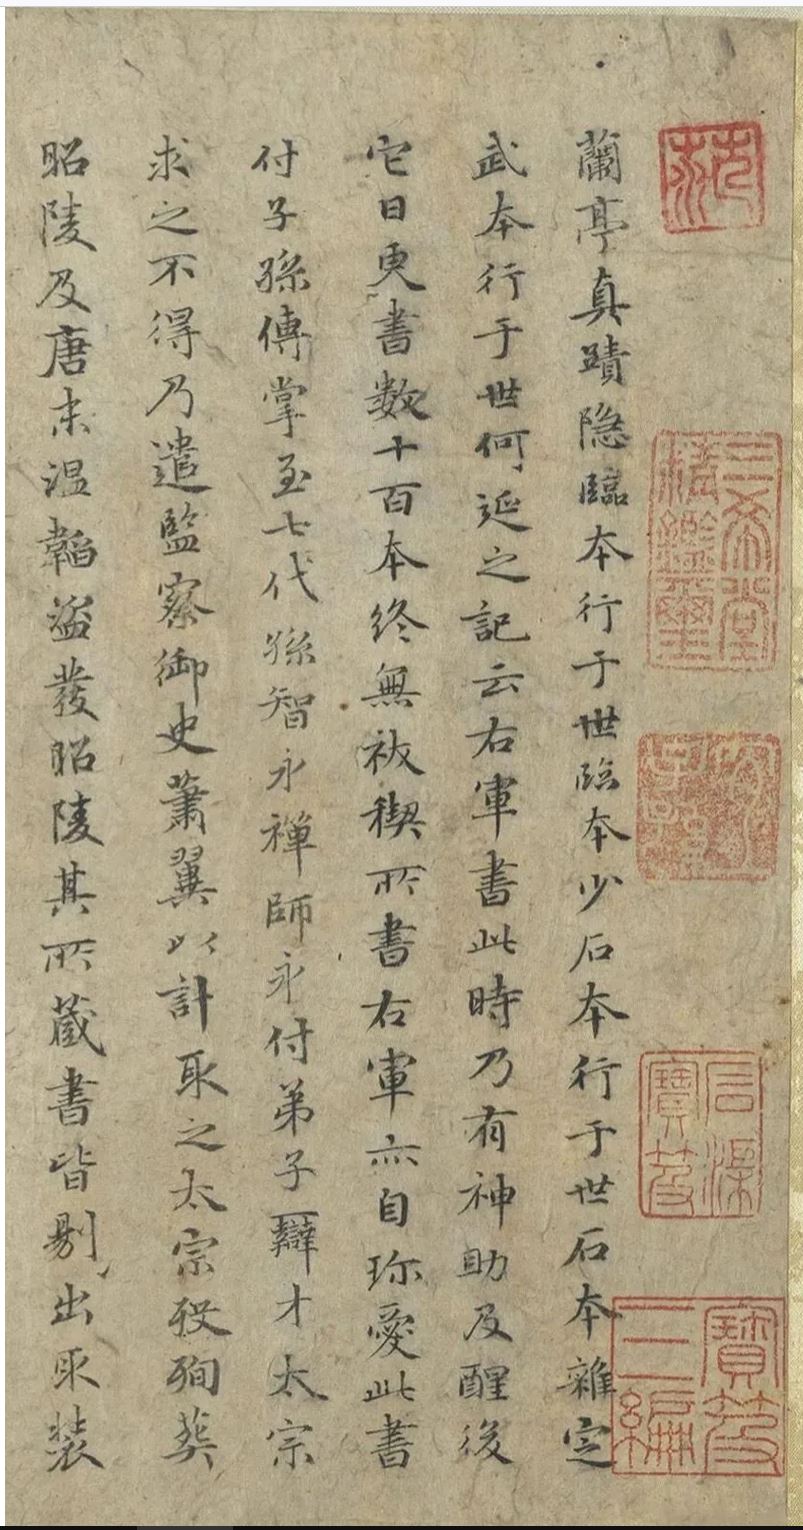 蘭亭真蹟隐臨本行于世臨本少石本行于世石本雜定
武本行于世何延之記云右軍書此時乃有神助及醒後
它日更書數十百本終無祓禊所書右軍亦自珎愛此書
付子孫傳掌至七代孫智永禪師永付弟子辯才太宗
求之不得乃遣監察御史蕭翼以計取之太宗殁殉葬
昭陵及唐末温韜盗發昭陵其所藏書皆剔出取裝
三希堂精鑑璽
寶笈三編